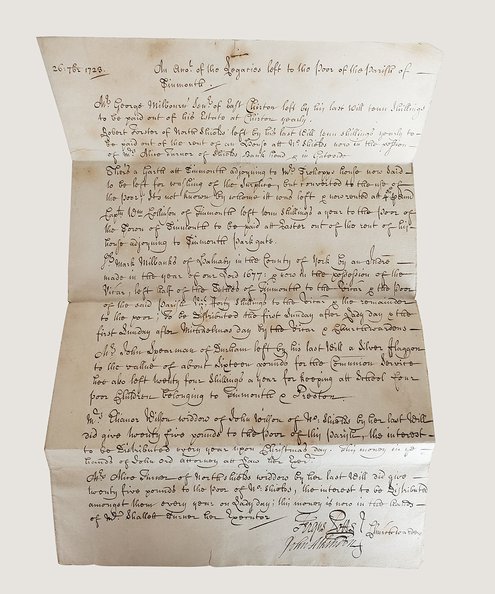 26. 7br 1723. An Acnt. of the Legacies left to the Poor of the Parish of
Tinmouth
Mr. George Milbourn Senr. of East Chirton left by his last Will tenn Shillings
to be paid out of his Estate at Chirton yearly.
Robert Forster of North Shields left by his last Will tenn shillings yearly to
be paid out of the rent of an House at No. Shields now in the
of Mrs. Alice Turner of Shields Bank head
There's a Garth at Tinmouth adjoyning to Mr. house now said
to be left for washing of the Surplice, but converted to the use of
the Poor, do not known by whome it was left & now rented at
Captn. Wm. of Tinmouth left tenn Shillings a year to the Poor of
the Town of Tinmouth to be paid at Easter out of the rent of his
house adjoyning to Tinmouth Park gate.
Mark Milbanke of in the County of York by an Indre
made in the year of our Lord 1677, & now in the possession of the
Vicar, left half of the Tithes of Tinmouth to the Vicar & the Poor
of the said Parish forty Shillings to the Vicar & the remainder
to the poor. To be Distributed the first Sunday after Lady day & the
first Sunday after Michaelmas day by the Vicar & Churchwardens
Mr. John Spearman of Durham left by his last Will a Silver Flaggon
to the value of about sixteen pounds for the Communion Service
hee also left twenty four Shillings a year for keeping att School four
poor Children belonging to Tinmouth & Preston
Mrs. Elianor Wilson widdow of John Wilson of No. Shields by her last Will
did give twenty five pounds to the Poor of this Parish, the interest
to be Distributed every year upon Christmas day. This money in ye
hands of John Attorney at Law her Exer.
Mrs. Alice Turner of North Shields widdow by her last Will did give
twenty five pounds to the Poor of No. Shields, the interest to be Distributed
amongst them every year on Lady day; this money is now in the hands
of Mr. Shallett Turner her Executor
Churchwardens
John